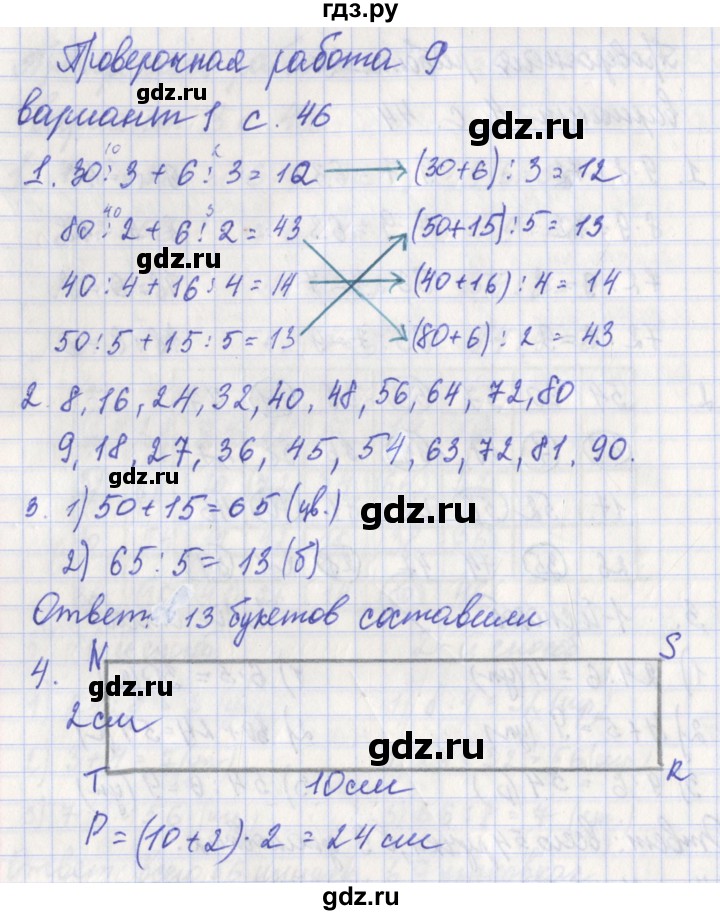 гдз.ру
Проверочная работа 9
gdz.ru
вариант 1 с. 46
gdz.ru
10 2
1. 30:3 + 6:3 = 12 → (30+6):3 = 12
40 3
80:2 + 6:2 = 43 (50+15):5 = 13
gdz.ru
40:4 + 16:4 = 14 (40+16):4 = 14
50:5 + 15:5 = 13 (80+6):2 = 43
2. 8, 16, 24, 32, 40, 48, 56, 64, 72, 80
9, 18, 27, 36, 45, 54, 63, 72, 81, 90.
gdz.ru
3. 1) 50+15=65 (цв.)
gdz.ru
2) 65:5= 13 (б)
Ответ: 13 букетов составили
N S
4.
gdz.ru
2 см
gdz.ru
T R
10 см
P = (10+2)·2 = 24 см
gdz.ru
gdz.ru